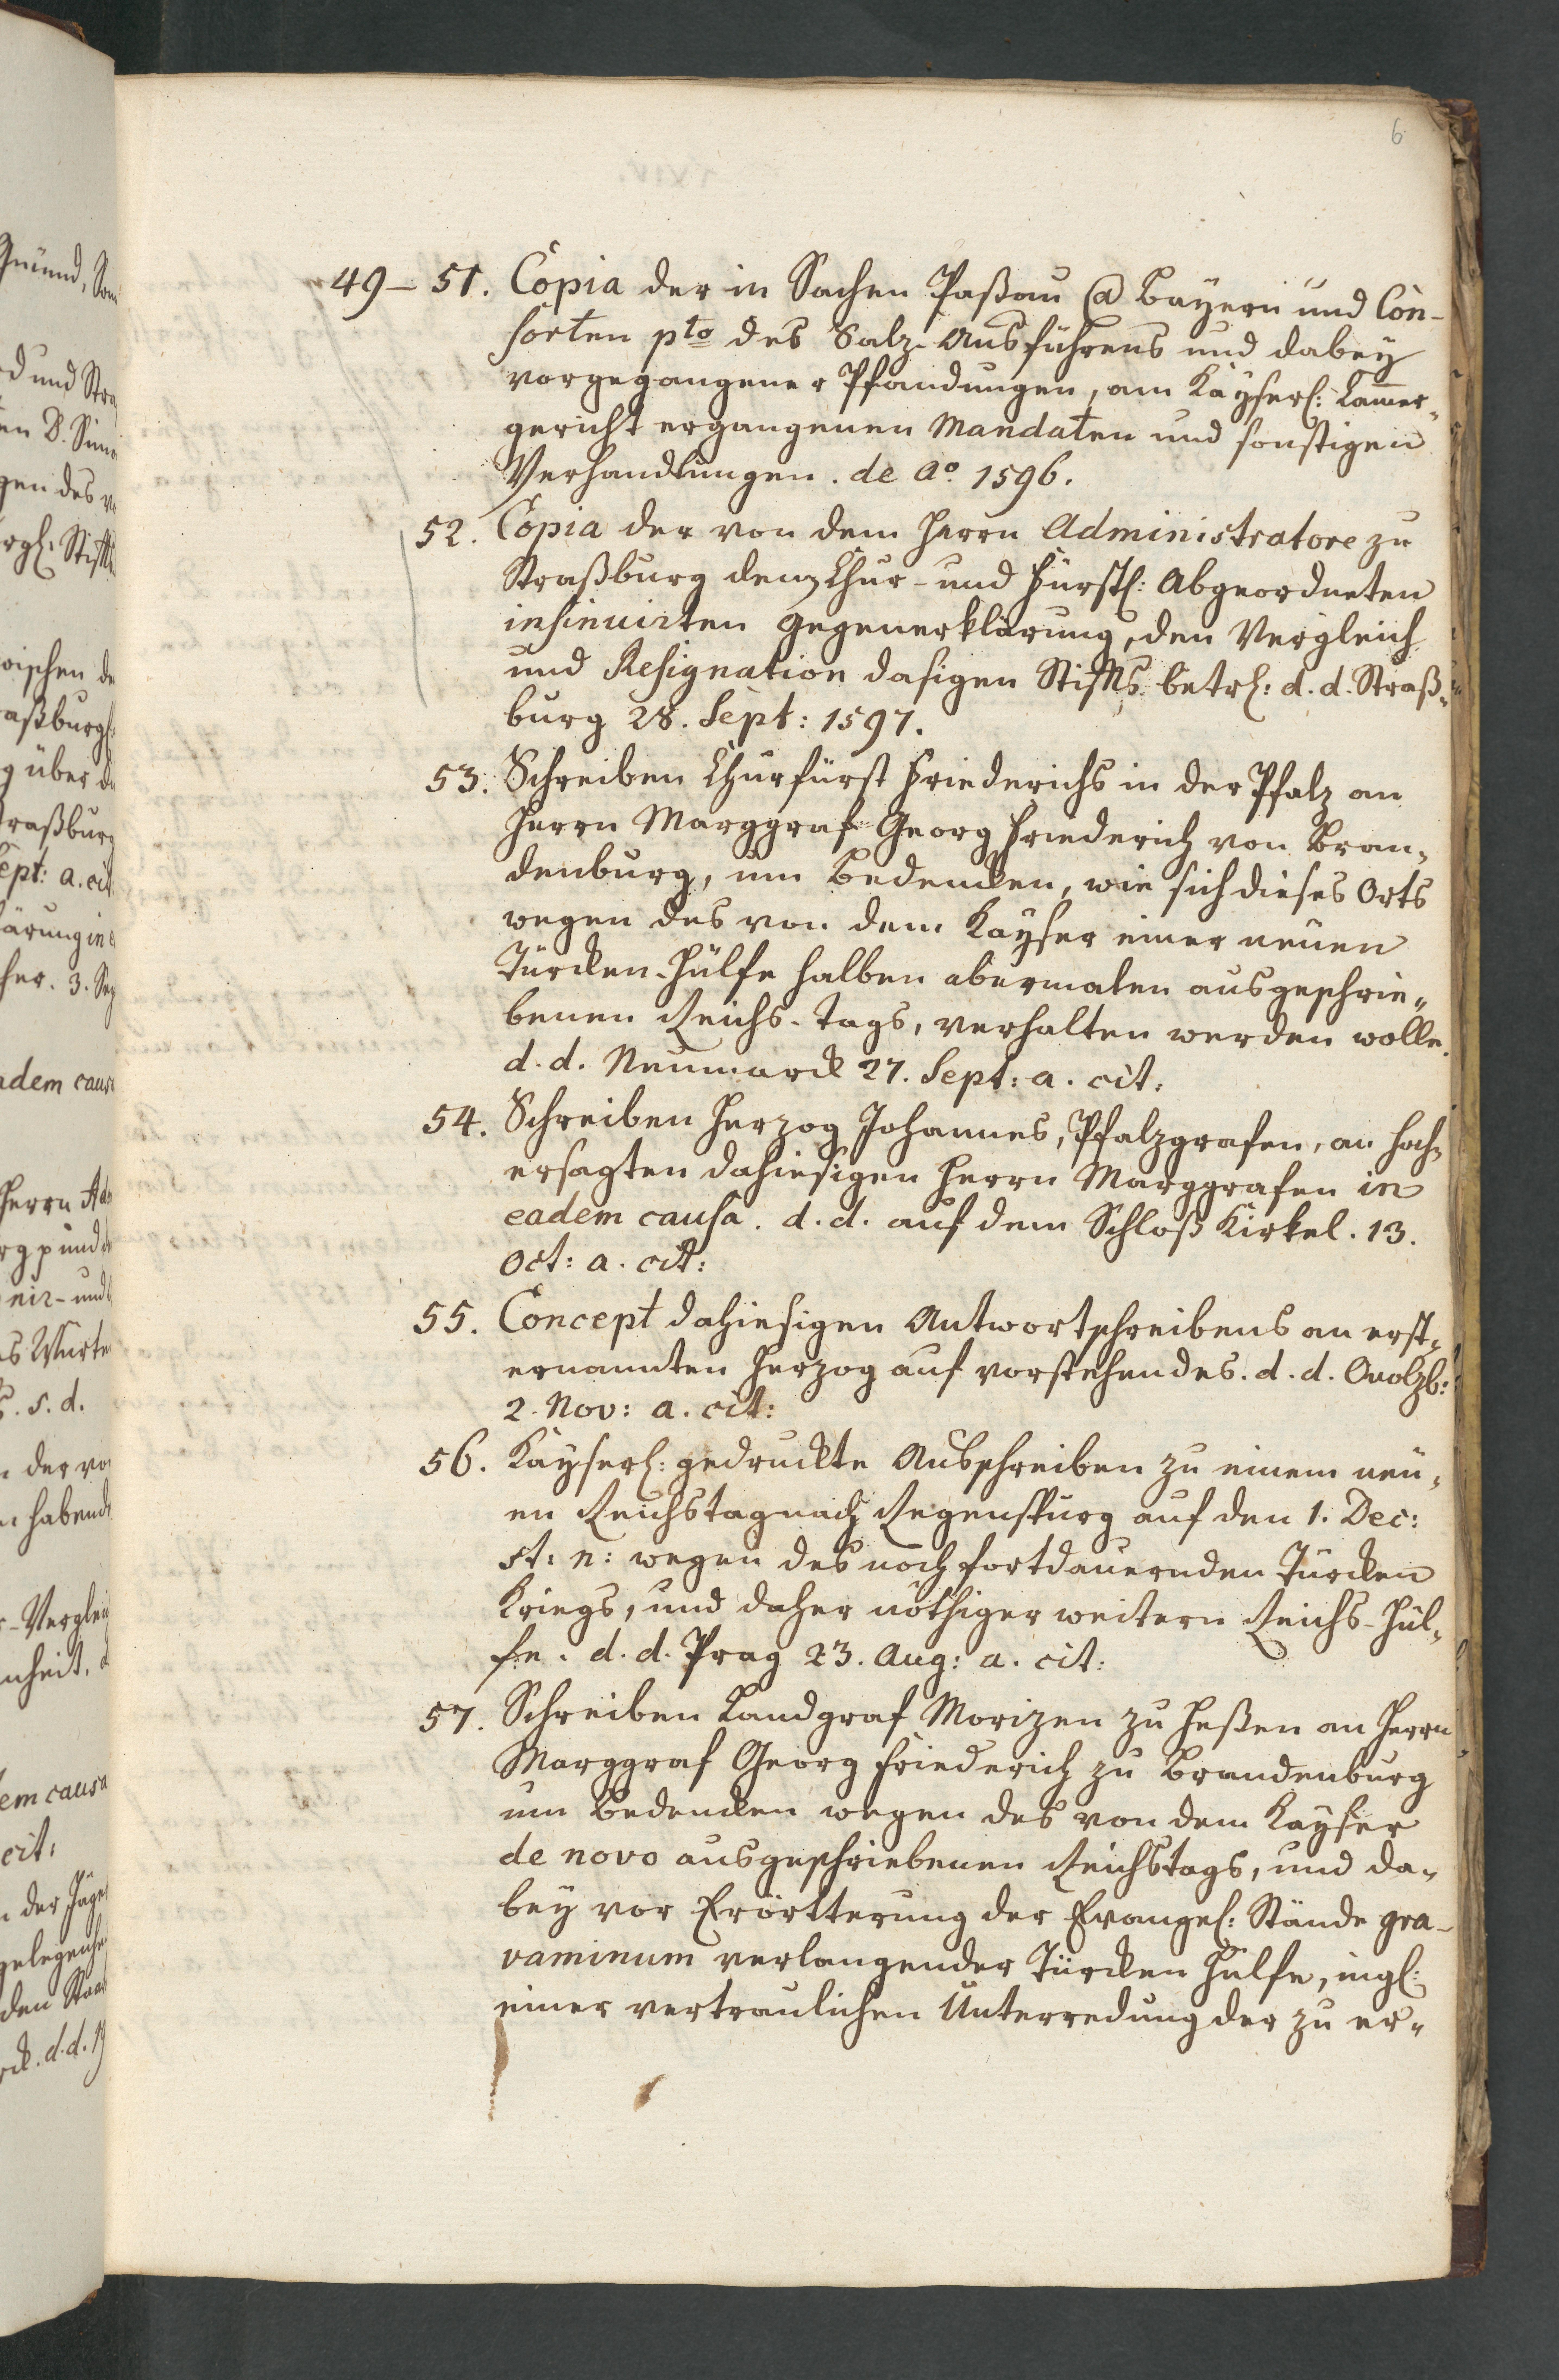 6
49–51. Copia der in Sachen Paßau @ Bayern und Con-
sorten pto des Salz-Ausführens und dabey
vorgegangener Pfandungen, am Kayserl: Cammer-
gericht ergangenen Mandaten und sonstigen
Verhandlungen. de Ao. 1596.
52. Copia der von dem Herrn Administratore zu
Straßburg denen Chur- und Fürstl: Abgeordneten
insinuirten Gegenerklärung, den Vergleich
und Resignation dasigen Stiffts betrl: d. d. Straß-
burg 28. Sept: 1597.
53. Schreiben Churfürst Friederichs in der Pfalz an
Herrn Marggraf Georg Friederich von Bran-
denburg, um Bedencken, wie sich dieses Orts
wegen des von dem Kayser einer neuen
Türcken-Hülfe halben abermalen ausgeschrie-
benen Reichs-Tags, verhalten werden wolle.
d. d. Neumarck 27. Sept: a. cit:
54. Schreiben Herzog Johannes, Pfalzgrafen, an hoch-
ersagten dahiesigen Herrn Marggrafen in
eadem causa. d. d. auf dem Schloß Kirkel. 13.
Oct: a. cit:
55. Concept dahiesigen Antwortschreibens an erst-
ernannten Herzog auf vorstehendes. d. d. Onolzb:
2. Nov: a. cit:
56. Kayserl: gedruckte Ausschreiben zu einem neu-
en Reichstag nach Regenspurg auf den 1. Dec:
st: n: wegen des noch fortdauernden Türcken
Kriegs, und daher nöthiger weitern Reichs-Hül-
fe. d. d. Prag 23. Aug: a. cit:
57. Schreiben Landgraf Morizen zu Heßen an Herrn
Marggraf Georg Friederich zu Brandenburg
um Bedencken wegen des von dem Kayser
de novo ausgeschriebenen Reichstags, und da-
bey vor Erörtterung der Evangel: Stände gra-
vaminum verlangender Türcken Hülfe, ingl:
einer vertraulichen Unterredung der zu er-